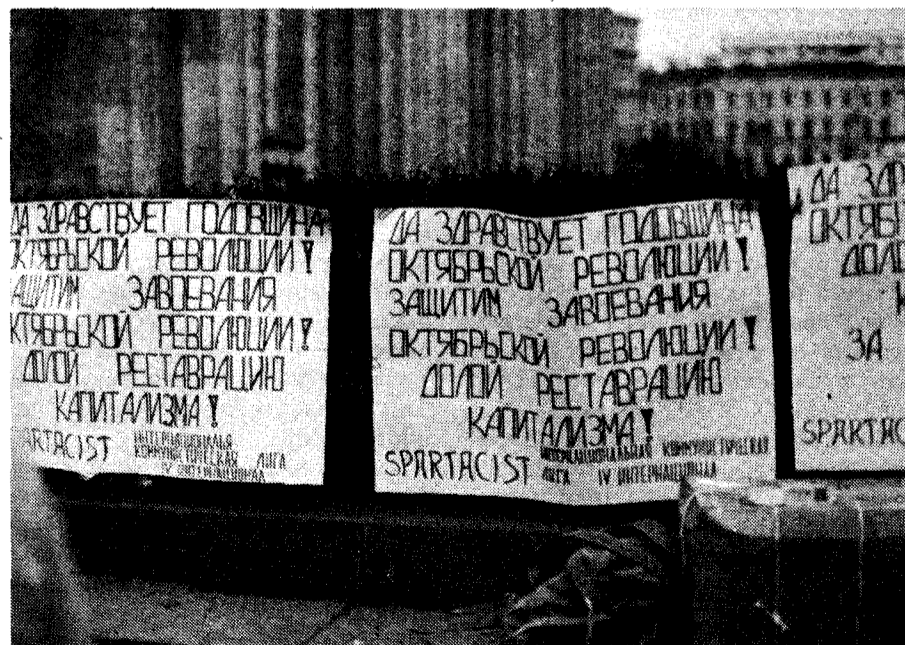 ДА ЗДРАВСТВУЕТ ГОДОВЩИНА
ОКТЯБРЬСКОЙ РЕВОЛЮЦИИ!
ЗАЩИТИМ ЗАВОЕВАНИЯ
ОКТЯБРЬСКОЙ РЕВОЛЮЦИИ!
ДОЛОЙ РЕСТАВРАЦИЮ
КАПИТАЛИЗМА!
SPARTACIST
КОММУНИСТИЧЕСКАЯ ЛИГА
IV ИНТЕРНАЦИОНАЛ
ДА ЗДРАВСТВУЕТ ГОДОВЩИНА
ОКТЯБРЬСКОЙ РЕВОЛЮЦИИ!
ЗАЩИТИМ ЗАВОЕВАНИЯ
ОКТЯБРЬСКОЙ РЕВОЛЮЦИИ!
ДОЛОЙ РЕСТАВРАЦИЮ
КАПИТАЛИЗМА!
ИНТЕРНАЦИОНАЛЬНАЯ КОММУНИСТИЧЕСКАЯ
SPARTACIST ЛИГА IV ИНТЕРНАЦИОНАЛА
ДА ЗДР
ОКТЯБР
ДОЛ
К
ЗА
SPARTAC